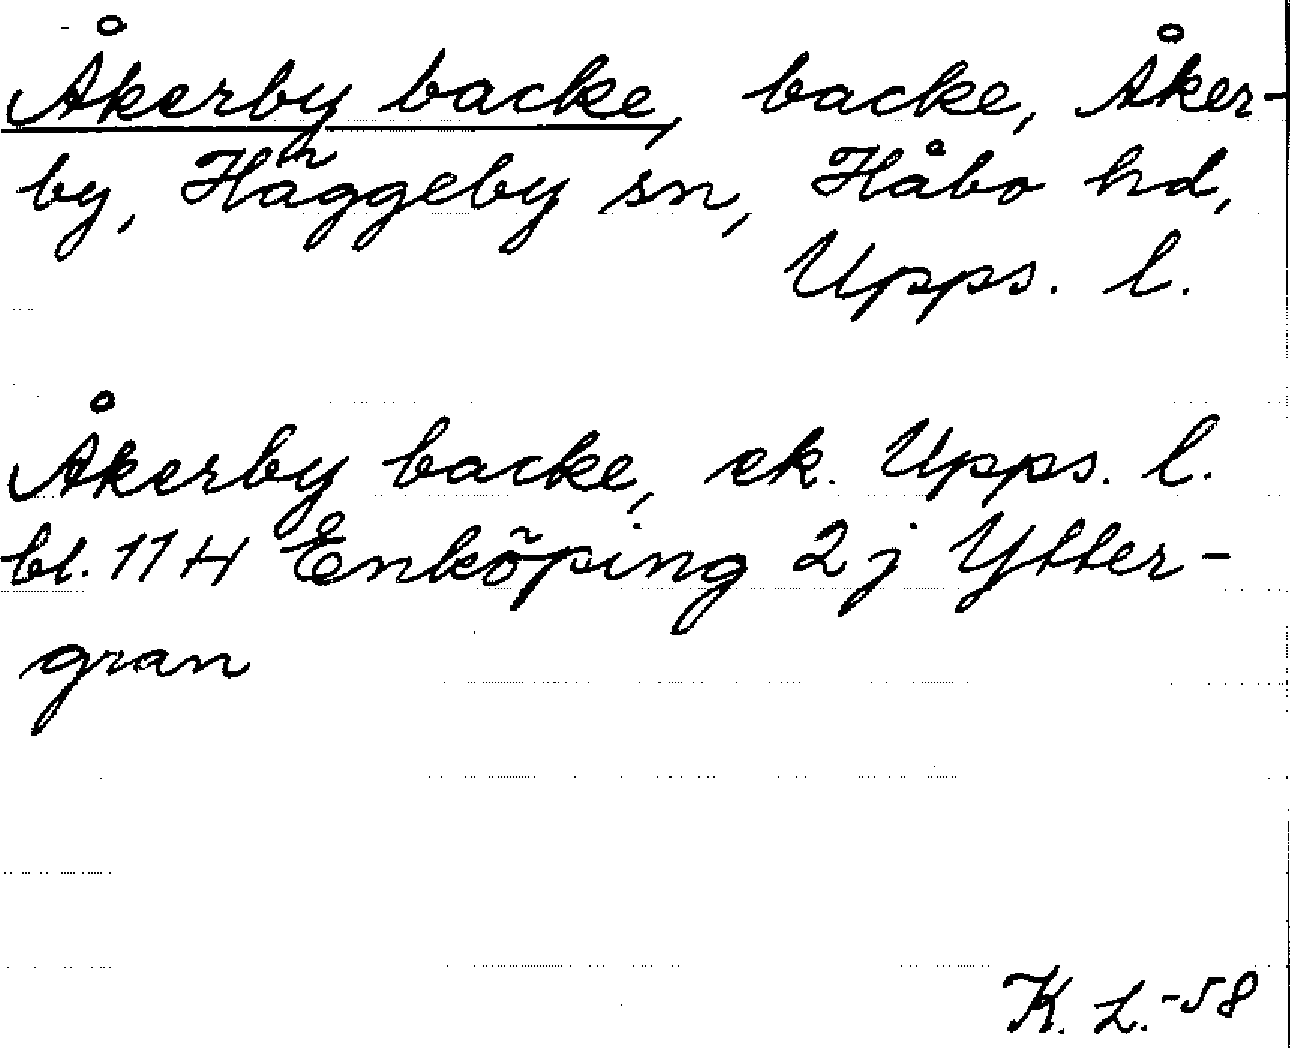 Åkerby backe, backe, Åker-
by, Häggeby sn, Håbo hd,
Upps. l.
Åkerby backe, ek. Upps. l.
bl. 114 Enköping 2j Ytter-
gran
K. L. -58